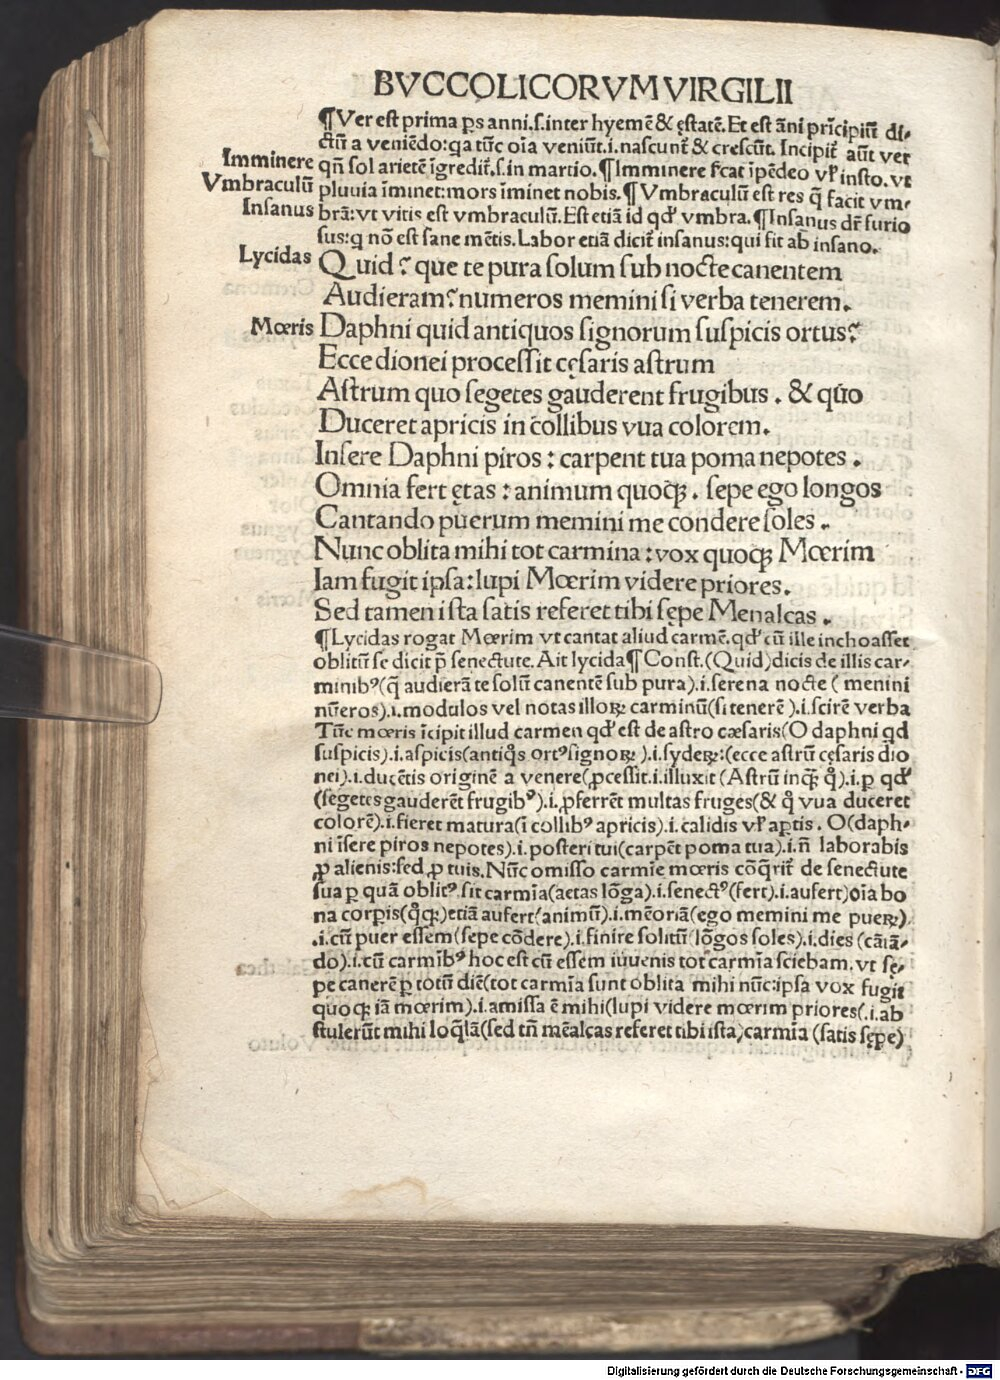 BVCCOLICORVM VIRGILII
¶Ver est prima ꝑs anni.s.inter hyemē & ęstatē. Et est āni prīcipiū di-
ctū a veniēdo:qa tūc oīa veniūt.i.nascunt̄ & crescūt. Incipit̄ aūt ver
Imminere qñ sol arietē īgredit̄.s.in martio. ¶Imminere ſcat īpēdeo vl' insto. vt
Vmbraculū pluuia īminet:mors īminet nobis. ¶Vmbraculū est res q̄ facit vm-
Insanus brā:vt vitis est vmbraculū. Est etiā id qd' vmbra. ¶Insanus dr̄ furio
sus:q nō est sane mētis. Labor etiā dicit̄ insanus:qui fit ab insano.
Lycidas Quid? que te pura solum sub nocte canentem
Audieram? numeros memini si verba tenerem.
Mœris Daphni quid antiquos signorum suspicis ortus?
Ecce dionei processit cęsaris astrum
Astrum quo segetes gauderent frugibus . & quo
Duceret apricis in collibus vua colorem.
Insere Daphni piros : carpent tua poma nepotes .
Omnia fert ętas : animum quoqꝫ . sepe ego longos
Cantando puerum memini me condere soles .
Nunc oblita mihi tot carmina : vox quoqꝫ Mœrim
Iam fugit ipsa:lupi Mœrim videre priores.
Sed tamen ista satis referet tibi sępe Menalcas .
¶Lycidas rogat Mœrim vt cantat aliud carmē.qd' cū ille inchoasset
oblitū se dicit p̄ senectute. Ait lycida ¶Const.(Quid)dicis de illis car-
minibꝰ(q̄ audierā te solū canentē sub pura).i.serena nocte ( menini
nūeros).i.modulos vel notas illoꝝ carminū(si tenerē ).i.scirē verba
Tūc mœris īcipit illud carmen qd' est de astro cæsaris(O daphni qd
suspicis).i.aspicis(antiqͦs ortꝰ signoꝝ ).i.syderꝝ:(ecce astrū cęsaris dio
nei).i.ducētis originē a venere(ꝓcessit.i.illuxit (Astrū inqꝫ qͦ).i.ꝑ qd'
(segetes gauderēt frugibꝰ).i.ꝓferrēt multas fruges(& qͦ vua duceret
colorē).i.fieret matura(ī collibꝰ apricis).i.calidis vl' aꝑtis . O(daph-
ni īsere piros nepotes).i.posteri tui(carpēt poma tua).i.ñ laborabis
ꝓ alienis:sed ꝓ tuis. Nūc omisso carmīe mœris cōq̄rit̄ de senectute
sua ꝑ quā oblitꝰ sit carmīa(aetas lōga).i.senectꝰ(fert).i.aufert)oīa bo
na corꝑis(qͦqꝫ)etiā aufert(animū).i.mēoriā(ego memini me puerꝝ)
.i.cū puer essem(sepe cōdere).i.finire solitū(lōgos soles).i.dies (cātā-
do).i.cū carmībꝰ hoc est cū essem iuuenis tot carmīa sciebam. vt sę-
pe canerē ꝑ totū diē(tot carmīa sunt oblita mihi nūc:ipsa vox fugit
quoqꝫ iā mœrim).i.amissa ē mihi(lupi videre mœrim priores(.i.ab
stulerūt mihi loq̄lā(sed tñ mēalcas referet tibi ista)carmīa (satis sępe)
Digitalisierung gefördert durch die Deutsche Forschungsgemeinschaft - DFG